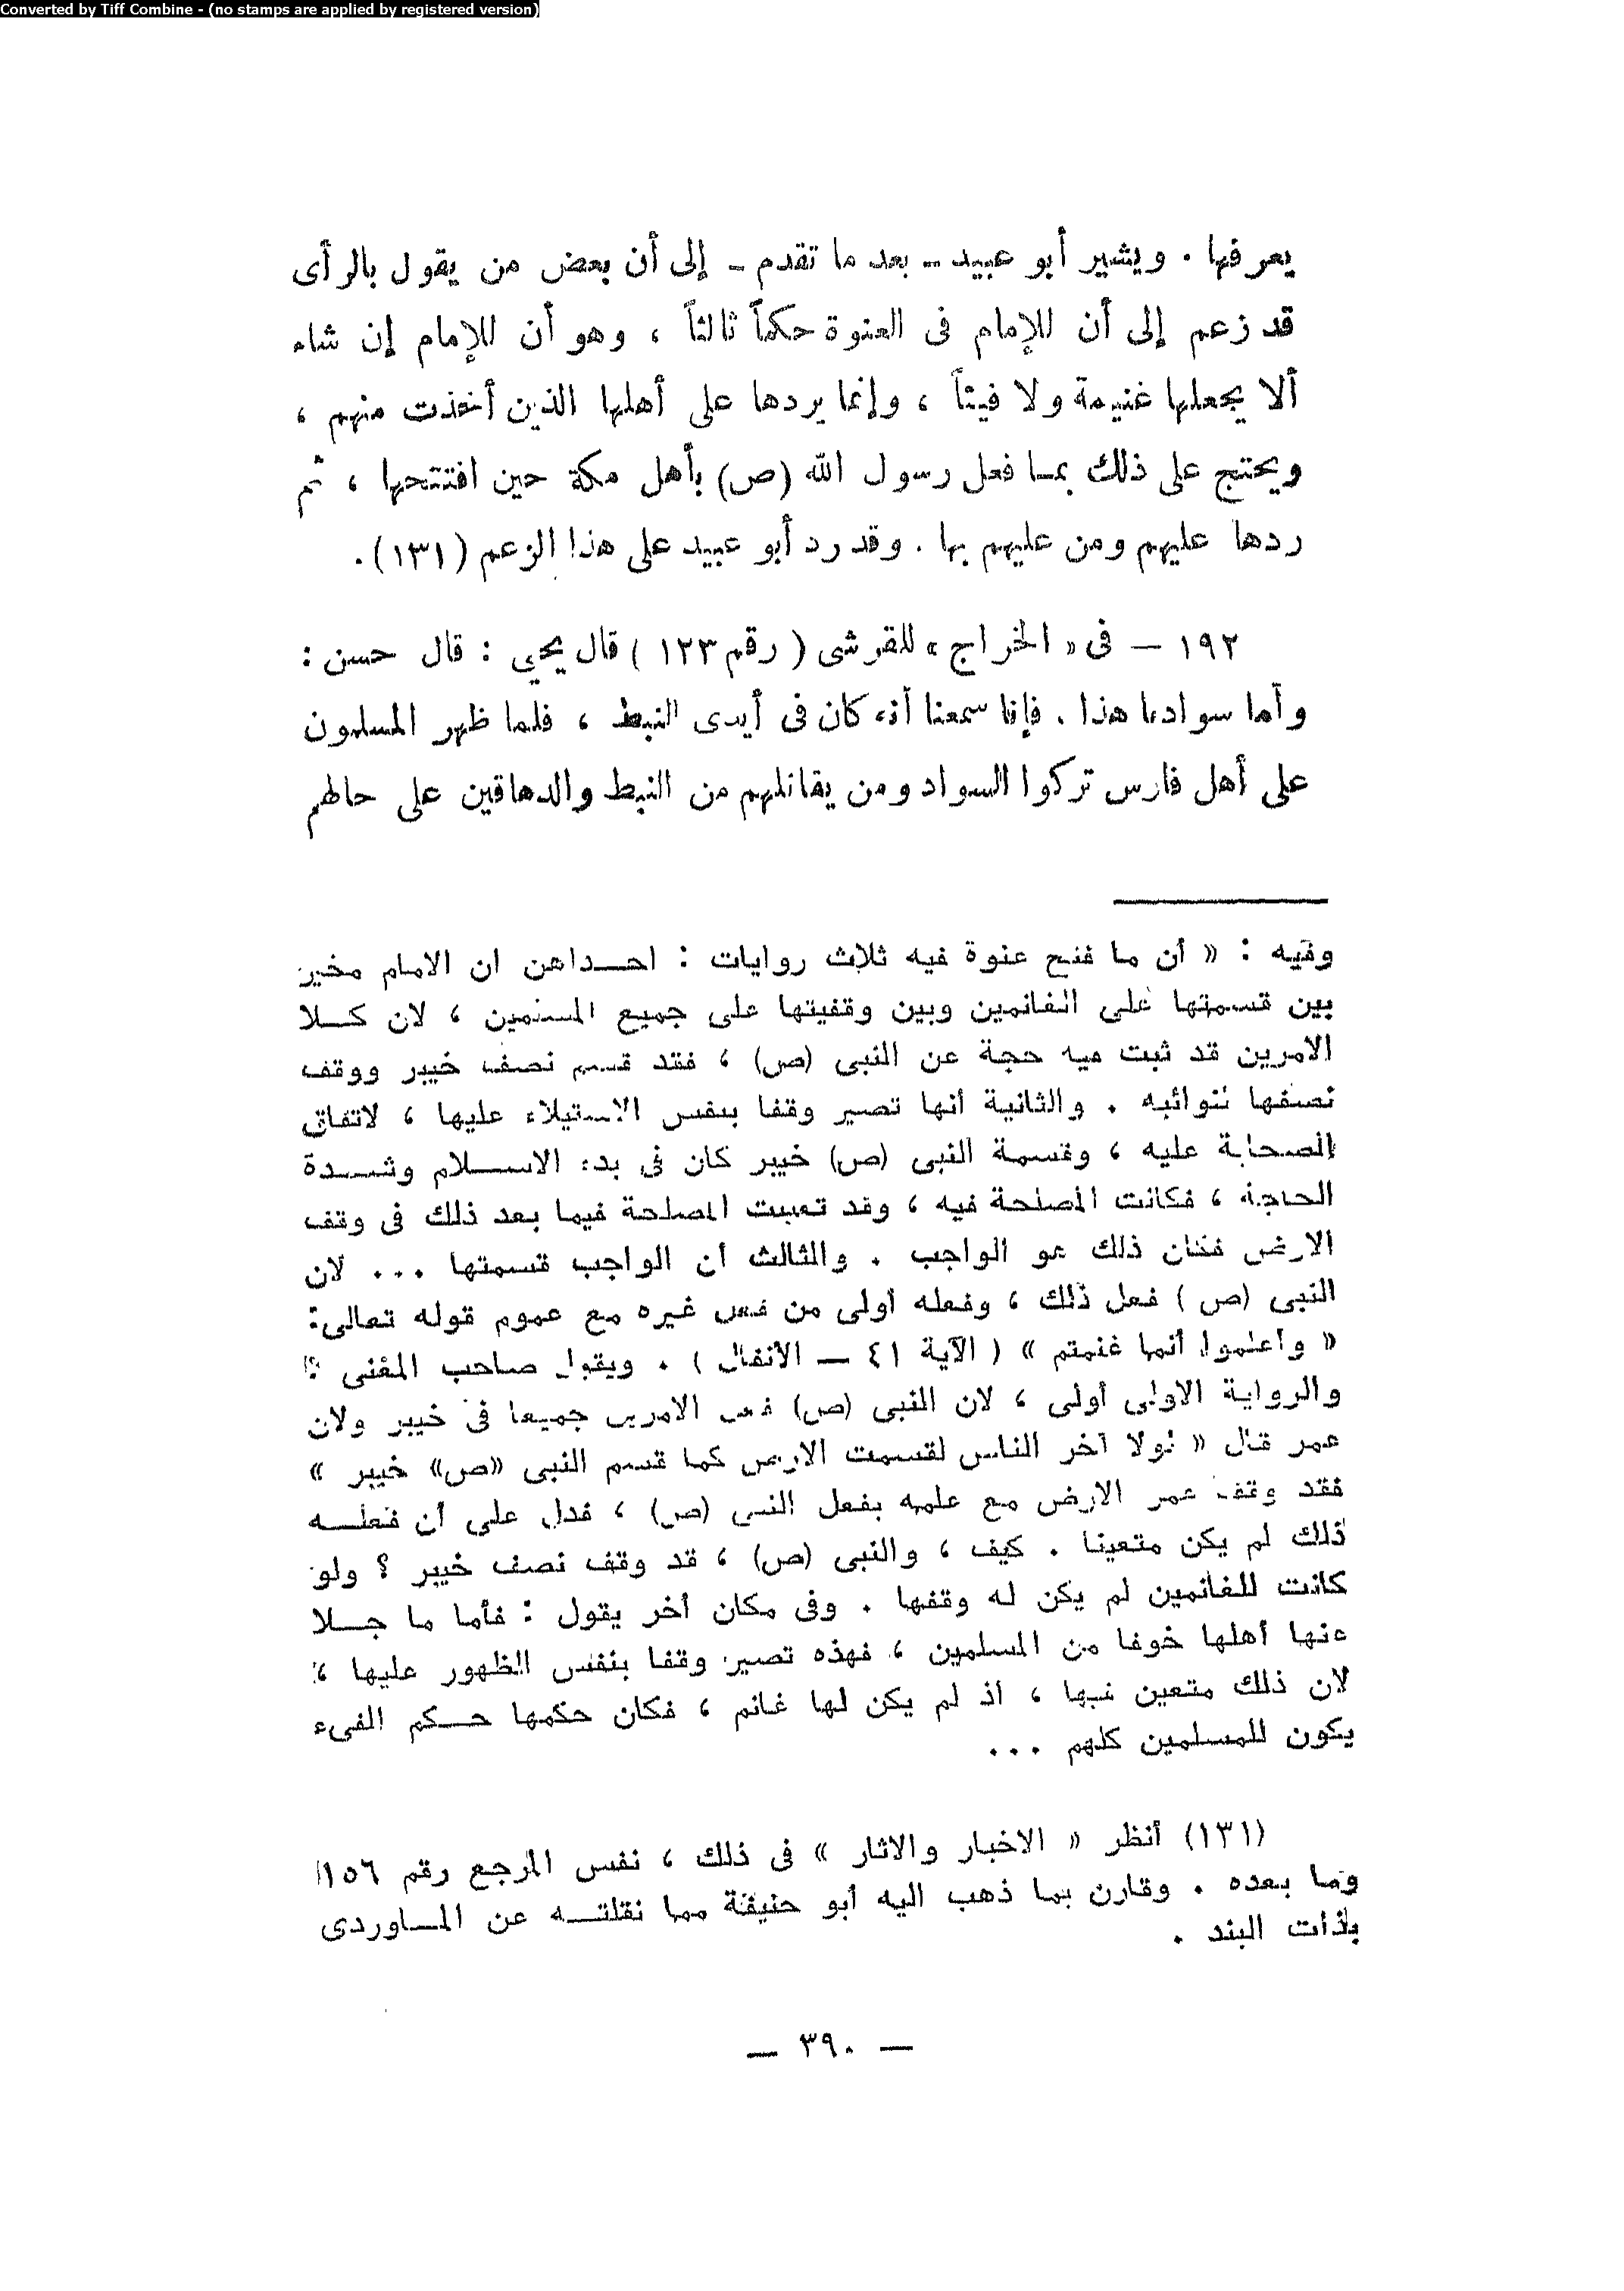 Converted by Tiff Combine - (no stamps are applied by registered version)
يعرفها . ويشير أبو عبيد -- بعد ما تقدم - إلى أن بعض من يقول بالرأى
قد زعم إلى أن للإمام فى العنوة حكماً ثالثاً ، وهو أن للإمام إن شاء
ألا يجعلها غنيمة ولا فيئاً ، وإنما يردها على أهلها الذين أخذت منهم ،
ويحتج على ذلك بما فعل رسول الله (ص) بأهل مكة حين افتتحها ، ثم
ردها عليهم ومن عليهم بها . وقد رد أبو عبيد على هذا الزعم (١٣١).
١٩٢ — فى « الخراج » للقرشى ( رقم ١٢٣ ) قال يحيي : قال حسن :
وأما سوادنا هذا . فإنا سمعنا أنه كان فى أيدى النبط ، فلما ظهر المسلمون
على أهل فارس تركوا السواد ومن يقاتلهم من النبط والدهاقين على حالهم
وفيه : « أن ما فتح عنوة فيه ثلاث روايات : احداهن ان الامام مخير
بين قسمتها على الغانمين وبين وقفيتها على جميع المسلمين ، لان كلا
الامرين قد ثبت فيه حجة عن النبى (ص) ، فقد قسم نصف خيبر ووقف
نصفها لنوائبه . والثانية أنها تصير وقفا بنفس الاستيلاء عليها ، لاتفاق
الصحابة عليه ، وقسمة النبى (ص) خيبر كان فى بدء الاسلام وشدة
الحاجة ، فكانت المصلحة فيه ، وقد تعينت المصلحة فيما بعد ذلك فى وقف
الارض فكان ذلك هو الواجب . والثالث أن الواجب قسمتها ... لان
النبى (ص) فعل ذلك ، وفعله أولى من فعل غيره مع عموم قوله تعالى:
« واعلموا أنما غنمتم » ( الآية ٤١ — الأنفال ) . ويقول صاحب المغنى :
والرواية الاولى أولى ، لان النبى (ص) فعل الامرين جميعا فى خيبر ولان
عمر قال « لولا آخر الناس لقسمت الارض كما قسم النبى «ص» خيبر »
فقد وقف عمر الارض مع علمه بفعل النبى (ص) ، فدل على أن فعله
ذلك لم يكن متعينا . كيف ، والنبى (ص) ، قد وقف نصف خيبر ؟ ولو
كانت للغانمين لم يكن له وقفها . وفى مكان أخر يقول : فأما ما جلا
عنها أهلها خوفا من المسلمين ، فهذه تصير وقفا بنفس الظهور عليها ،
لان ذلك متعين فيها ، اذ لم يكن لها غانم ، فكان حكمها حكم الفىء
يكون للمسلمين كلهم ...
(١٣١) أنظر « الاخبار والاثار » فى ذلك ، نفس المرجع رقم ١٥٦
وما بعده . وقارن بما ذهب اليه أبو حنيفة مما نقلته عن الماوردى
بذات البند .
— ٣٩٠ —